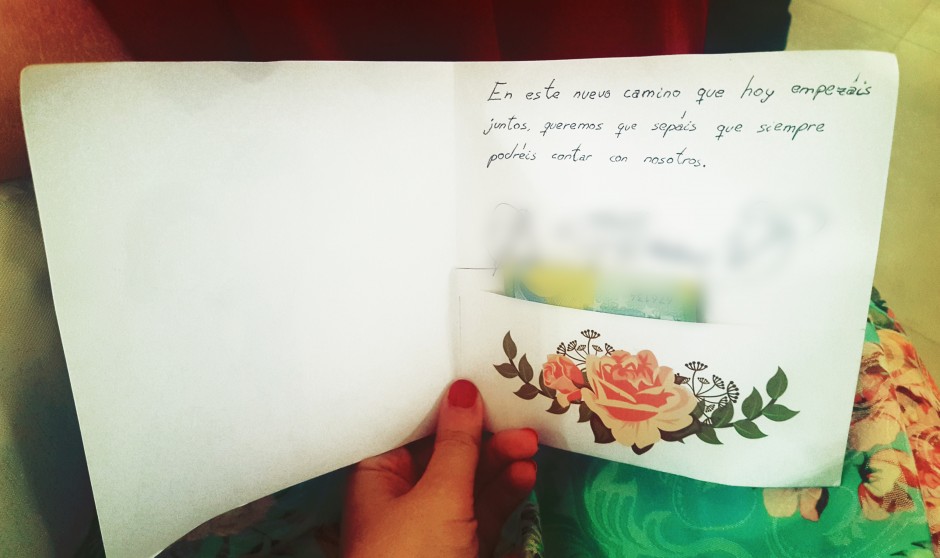 En este nuevo camino que hoy empezáis
juntos, queremos que sepáis que siempre
podréis contar con nosotros.